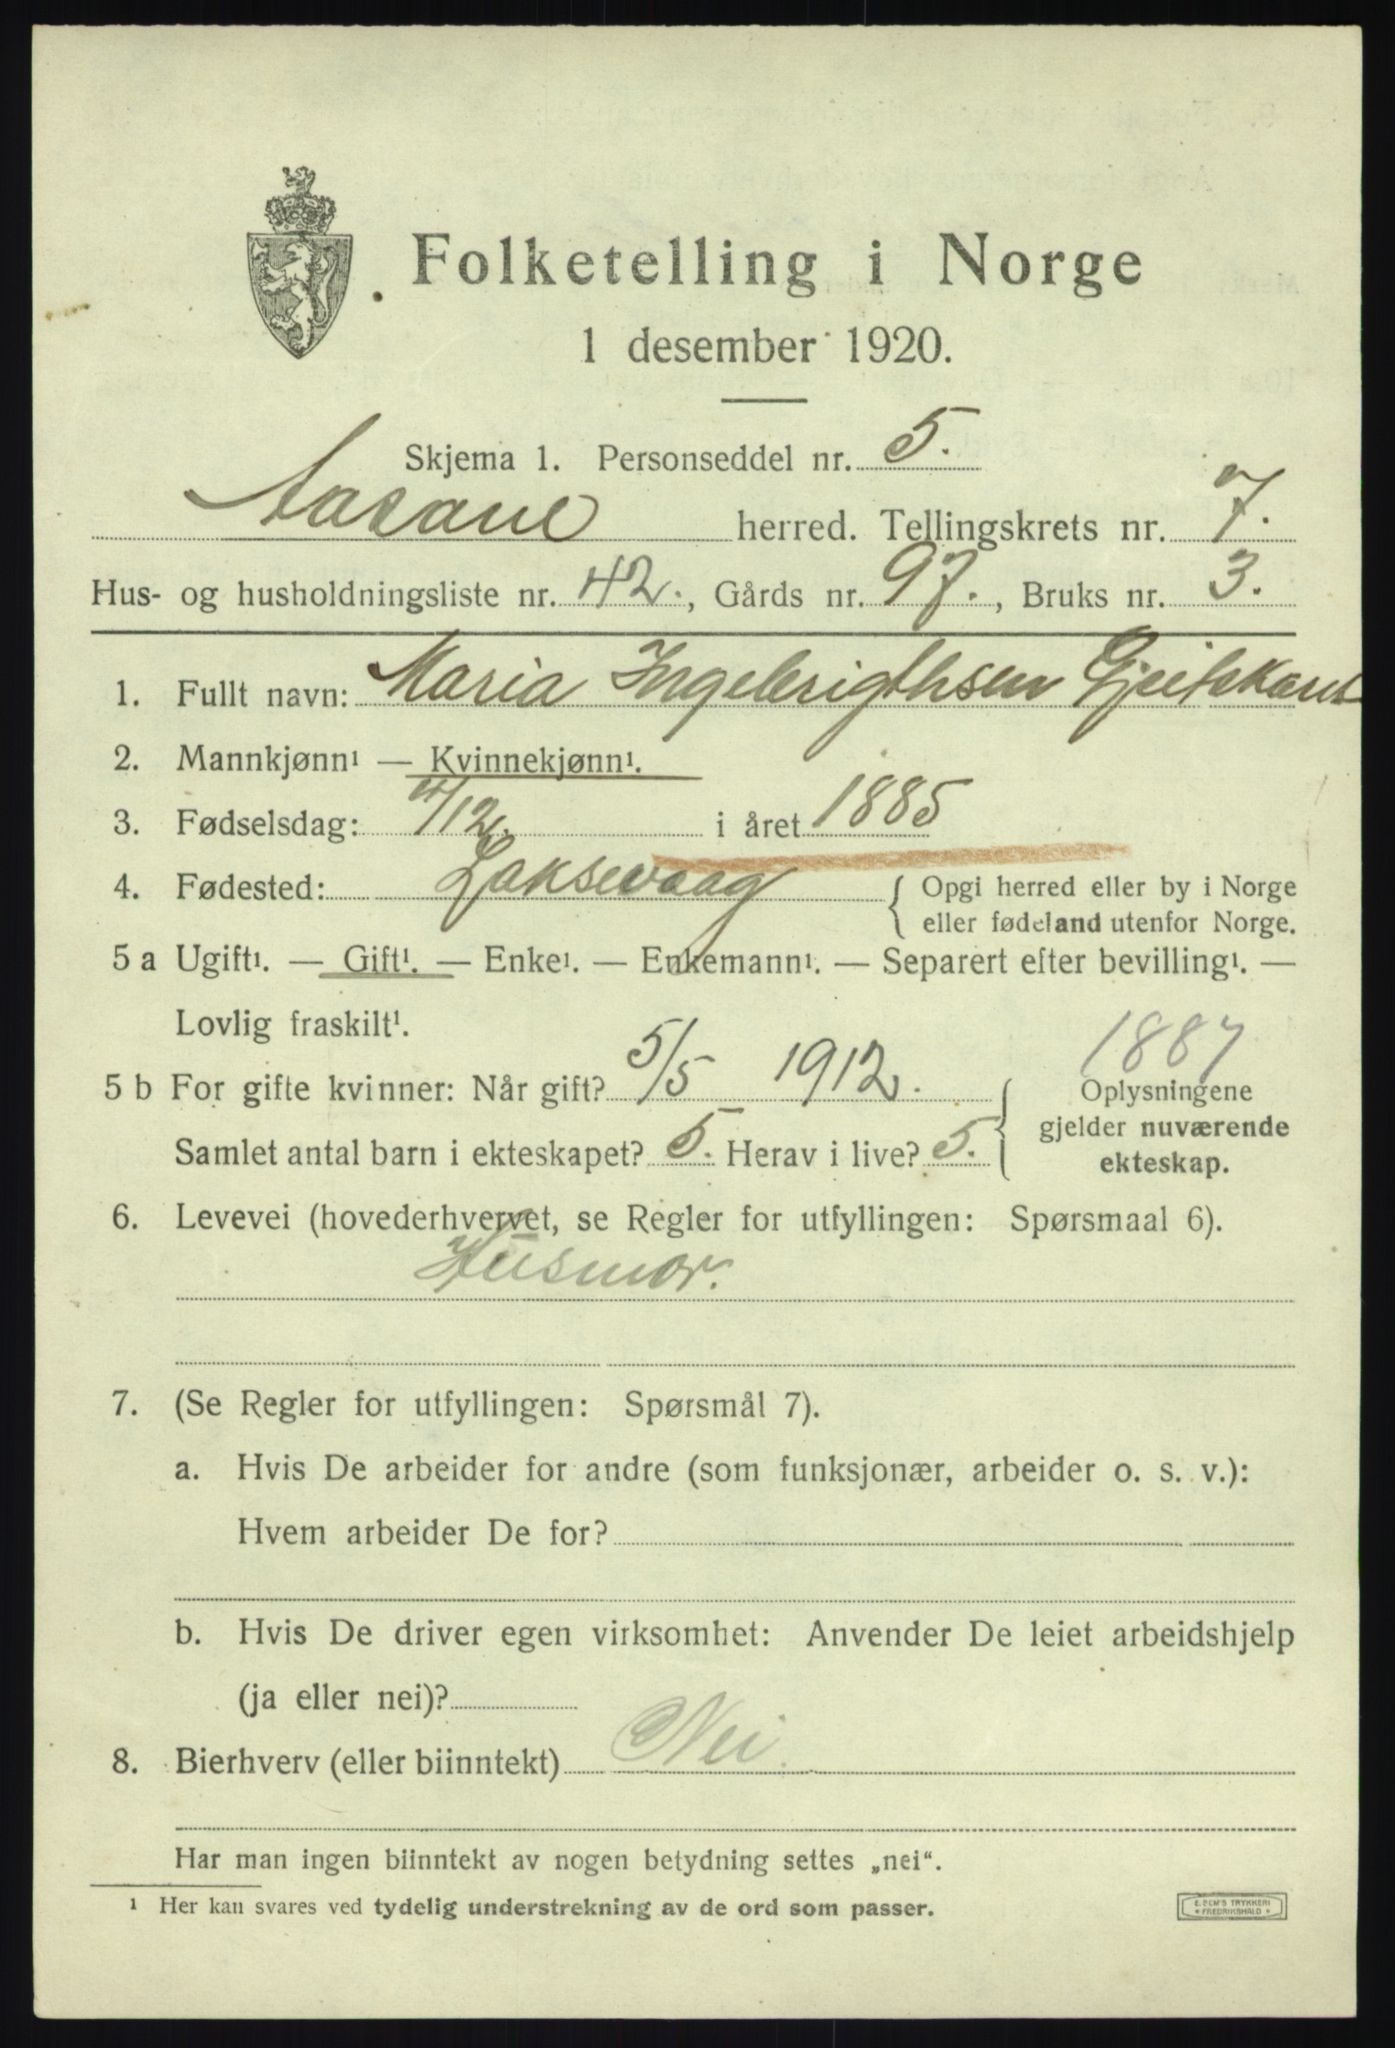 Folketelling i Norge
1 desember 1920.
Skjema 1. Personseddel nr. 5.
Aasane herred. Tellingskrets nr. 7.
Hus- og husholdningsliste nr. 42., Gårds nr. 97., Bruks nr. 3.
1. Fullt navn: Maria Ingebrigthsen Gjeitskant
2. Mannkjønn¹ — Kvinnekjønn¹.
3. Fødselsdag: 4/12. i året 1885
4. Fødested: Laksevaag { Opgi herred eller by i Norge
eller fødeland utenfor Norge.
5 a Ugift¹. — Gift¹. — Enke¹. — Enkemann¹. — Separert efter bevilling¹. —
Lovlig fraskilt¹.
1887
5 b For gifte kvinner: Når gift? 5/5 1912. { Oplysningene
gjelder nuværende
Samlet antal barn i ekteskapet? 5. Herav i live? 5. ekteskap.
6. Levevei (hovederhvervet, se Regler for utfyllingen: Spørsmaal 6).
Husmor.
7. (Se Regler for utfyllingen: Spørsmål 7).
a. Hvis De arbeider for andre (som funksjonær, arbeider o. s. v.):
Hvem arbeider De for?
b. Hvis De driver egen virksomhet: Anvender De leiet arbeidshjelp
(ja eller nei)?
8. Bierhverv (eller biinntekt) Nei.
Har man ingen biinntekt av nogen betydning settes „nei“.
¹ Her kan svares ved tydelig understrekning av de ord som passer.
E. SEM'S TRYKKERI
* FREDRIKSHALD *